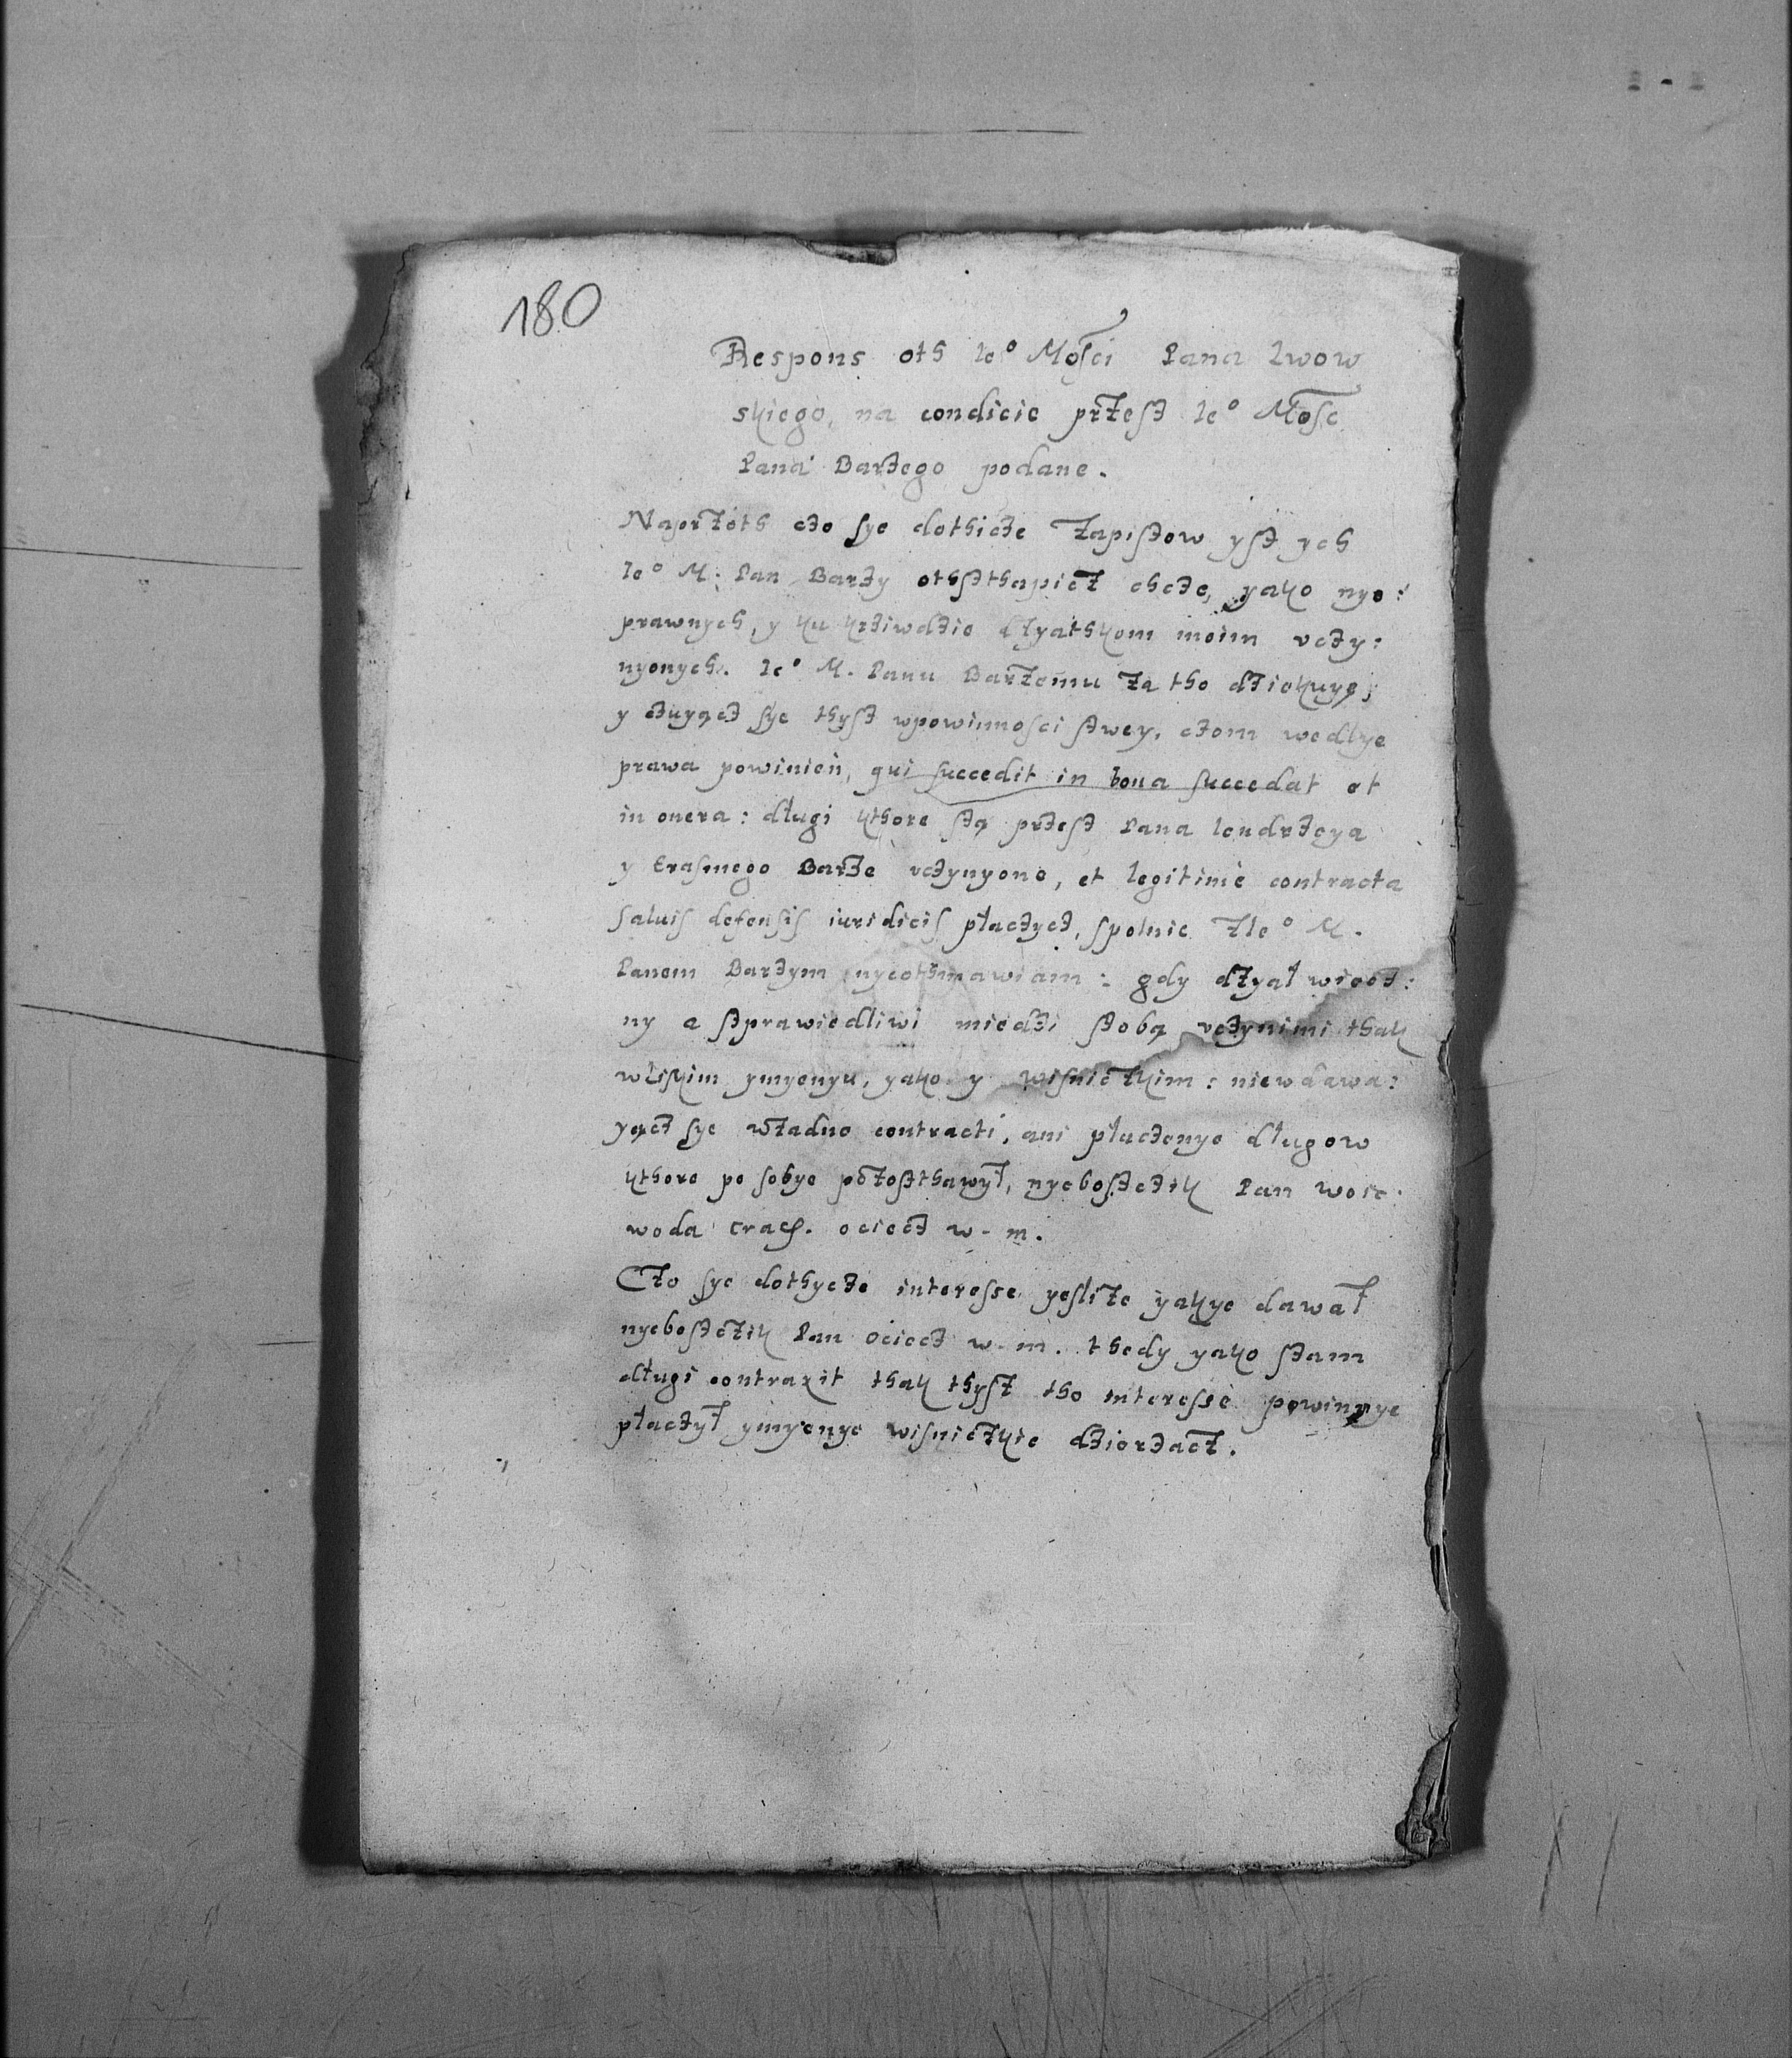 180
Respons oth Ieº Mosci Pana Lwow
skiego, na condicie przesz Ieº Mosc
Pana Barzego podane.
Naprzoth czo sye dothicze zapiszow ysz ych
Ieº M. Pan Barzy othszthapicz chcze, yako nye:
prawnych, y ku krziwdzie dzyathkom moim vczy:
nyonych. Ieº M. Panu Barzemu za tho dziekuye;
y czuyącz sye thysz wpowinnosci szwey, czom wedlye
prawa powinien, qui succedit in bona succedat et
in onera: długi kthore szą przesz Pana Iendrzeya
y Erasmego Barze vczynyone, et legitimè contracta
saluis defensis iuridicis płaczycz, spolnie zIeº M.
Panem Barzym nyeothmawiam: gdy dzyał wiecz:
ny a szprawiedliwi miedzi szobą vczynimi thak
wliskim ymyenyu, yako y wisniczkim: niewdawa:
yącz sye wzadne contracti, ani płaczenye długow
kthore po sobye pozoszthawył, nyeboszczik Pan woie:
woda crac. ociecz w. m.
Czo sye dothycze interesse yeslize yakye dawał
nyeboszczik Pan ociecz w. m. thedy yako szam
długi contraxit thak thysz tho interesse powinnye
płaczył ymyenye wisniczkie dzierzacz.